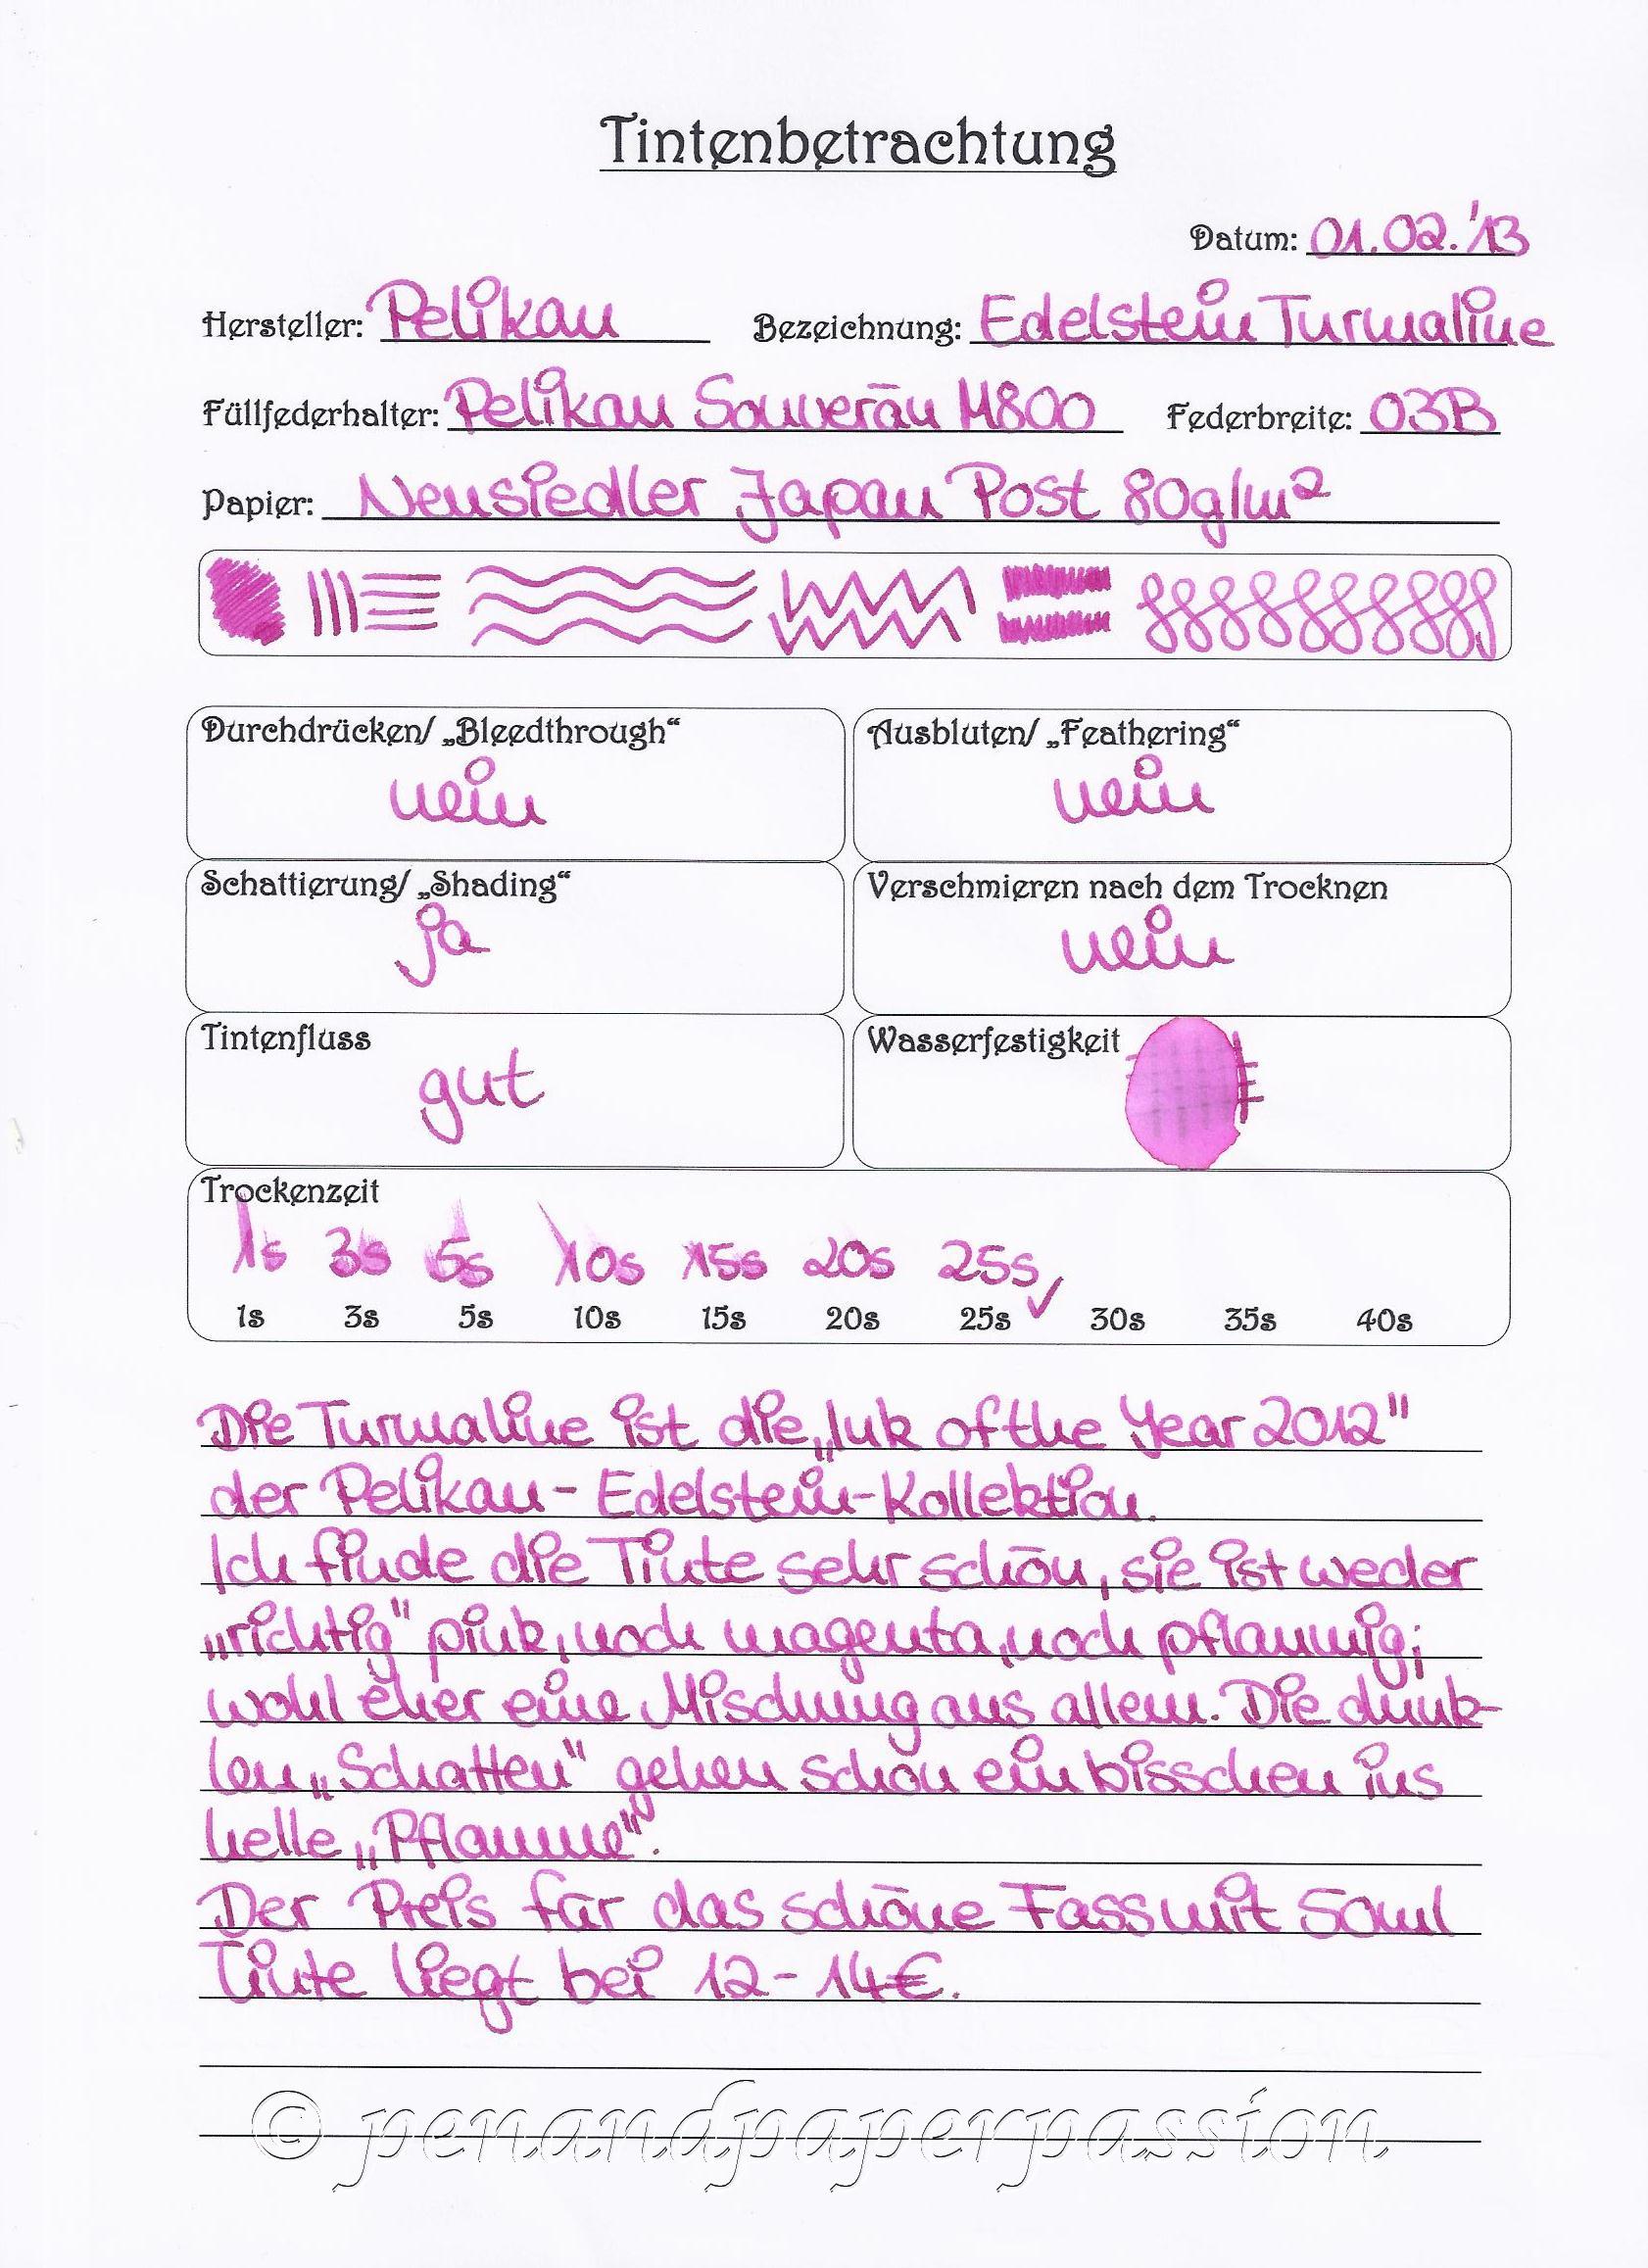 Tintenbetrachtung
Datum: 01.02.'13
Hersteller: Pelikan Bezeichnung: Edelstein Turmaline
Füllfederhalter: Pelikan Souverän M800 Federbreite: 03B
Papier: Neusiedler Japan Post 80g/m²
Durchdrücken/ „Bleedthrough“ Ausbluten/ „Feathering“
nein nein
Schattierung/ „Shading“ Verschmieren nach dem Trocknen
ja nein
Tintenfluss Wasserfestigkeit
gut
Trockenzeit
1s 3s 5s 10s 15s 20s 25s ✓
1s 3s 5s 10s 15s 20s 25s 30s 35s 40s
Die Turmaline ist die „Ink of the Year 2012"
der Pelikan-Edelstein-Kollektion.
Ich finde die Tinte sehr schön, sie ist weder
„richtig" pink, noch magenta, noch pflaumig;
wohl eher eine Mischung aus allem. Die dunk-
len „Schatten" gehen schon ein bisschen ins
helle „Pflaume".
Der Preis für das schöne Fass mit 50ml
Tinte liegt bei 12-14€.
© penandpaperpassion